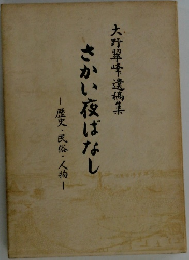 大野翠峰遺稿集
さかい夜ばなし
―歴史・民俗・人物―